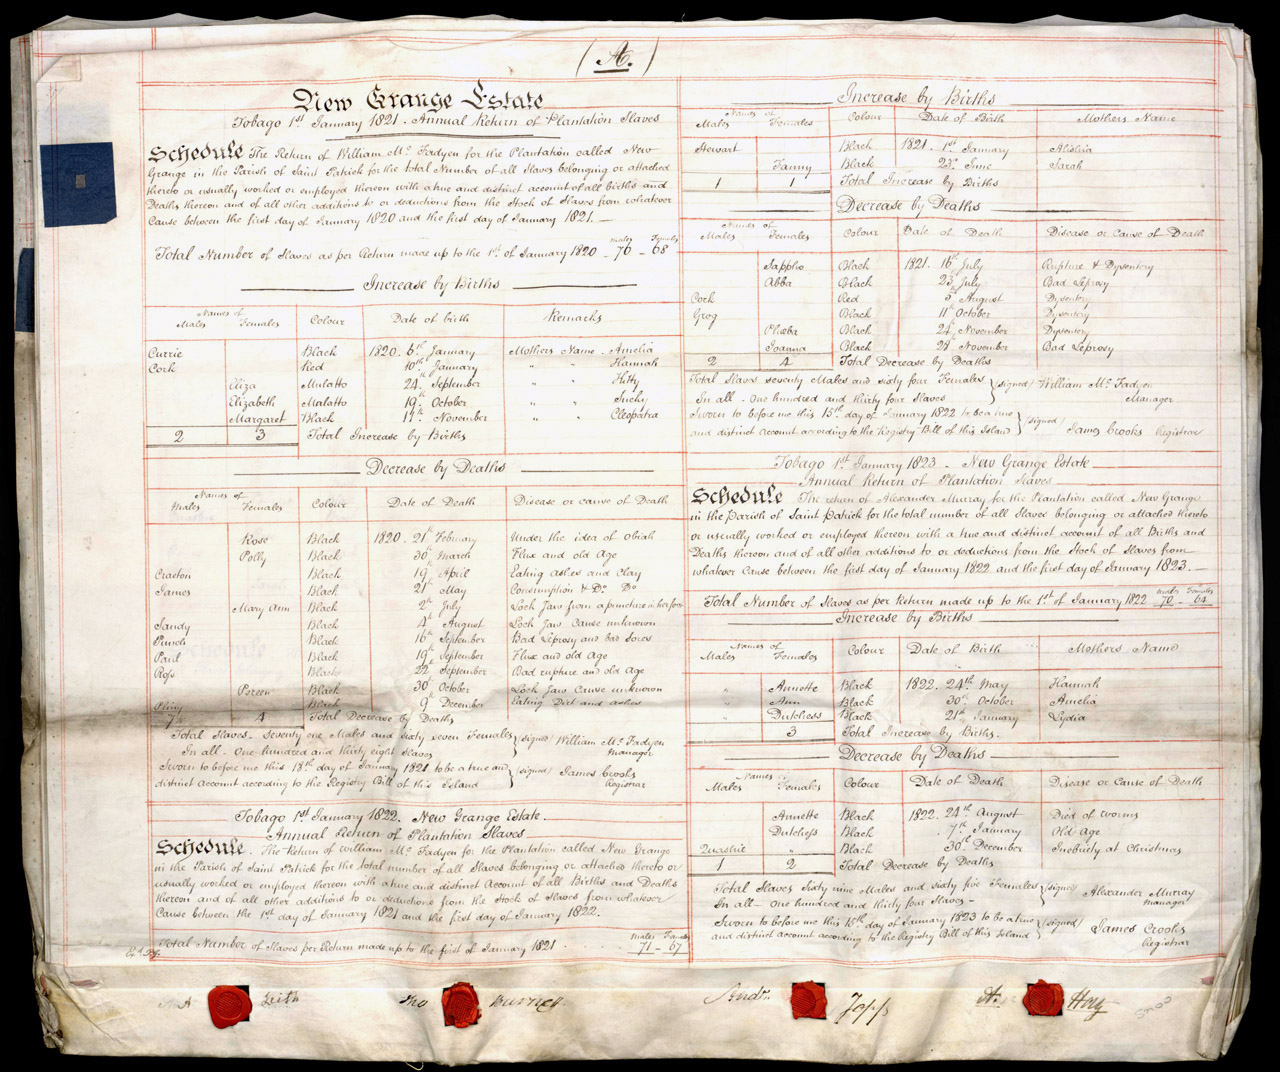 (A.)
New Grange Estate
Tobago 1st January 1821. Annual Return of Plantation Slaves
Schedule The Return of William Mc Fadyen for the Plantation called New
Grange in the Parish of Saint Patrick for the total Number of all Slaves belonging or attached
thereto or usually worked or employed thereon with a true and distinct account of all births and
Deaths thereon and of all other additions to or deductions from the Stock of Slaves from whatever
Cause between the first day of January 1820 and the first day of January 1821. —
Males Females
Total Number of Slaves as per Return made up to the 1st of January 1820 – 70 – 68
Increase by Births
Names of
Males Females Colour Date of birth Remarks
Currie Black 1820. 6th January Mothers Name. Amelia
Cork Red 10th January " " Hannah
Eliza Mulatto 24th September " " Hitty
Elizabeth Malatto 19th October " " Suchy
Margaret Black 17th November " " Cleopatra
2 3 Total Increase by Births
Decrease by Deaths
Names of
Males Females Colour Date of Death Disease or cause of Death
Rose Black 1820. 21st February Under the idea of obiah
Polly Black 30th March Flux and old Age
Craeton Black 19th April Eating ashes and Clay
James Black 21st May Consumption & Do Do
Mary Ann Black 2nd July Lock Jaw from a puncture in her foot
Sandy Black 4th August Lock Jaw Cause unknown
Punch Black 16th September Bad Leprosy and bad Sores
Paul Black 19th September Flux and old Age
Ross Black 22nd September Bad rupture and old Age
Pereen Black 30th October Lock Jaw Cause unknown
Pliny Black 9th December Eating Dirt and ashes
7 4 Total Decrease by Deaths
Total Slaves – Seventy one Males and Sixty seven Females (signed) William Mc Fadyen
In all – One hundred and thirty eight Slaves Manager
Sworn to before me this 18th day of January 1821 to be a true and (signed) James Crooks
distinct account according to the Registry Bill of this Island Registrar
Tobago 1st January 1822. New Grange Estate.
Annual Return of Plantation Slaves
Schedule. The Return of William Mc Fadyen for the Plantation called New Grange
in the Parish of Saint Patrick for the total number of all Slaves belonging or attached thereto or
usually worked or employed thereon with a true and distinct Account of all Births and Deaths
thereon and of all other additions to or deductions from the Stock of Slaves from whatever
Cause between the 1st day of January 1821 and the first day of January 1822.
Males Females
Total Number of Slaves per Return made up to the first of January 1821 . . 71 – 67
Increase by Births
Names of
Males Females Colour Date of Birth Mothers Name
Stewart Black 1821. 1st January Alishia
Fanny Black 23rd June Sarah
1 1 Total Increase by Births
Decrease by Deaths
Names of
Males Females Colour Date of Death Disease or Cause of Death
Sappho Black 1821. 16th July Rupture & Dysentery
Abba Black 23rd July Bad Leprosy
Cork Red 5th August Dysentery
Grog Black 11th October Dysentery
Phœba Black 24th November Dysentery
Joanna Black 28th November Bad Leprosy
2 4 Total Decrease by Deaths
Total Slaves seventy Males and sixty four Females (signed) William Mc Fadyen
In all – One hundred and thirty four Slaves Manager
Sworn to before me this 15th day of January 1822 to be a true (signed)
and distinct Account according to the Registry Bill of this Island James Crooks Registrar
Tobago 1st January 1823 – New Grange Estate
Annual Return of Plantation Slaves
Schedule The return of Alexander Murray for the Plantation called New Grange
in the Parish of Saint Patrick for the total number of all Slaves belonging or attached thereto
or usually worked or employed thereon with a true and distinct account of all Births and
Deaths thereon and of all other additions to or deductions from the Stock of Slaves from
whatever Cause between the first day of January 1822 and the first day of January 1823. —
Males Females
Total Number of Slaves as per Return made up to the 1st of January 1822 70 – 64
Increase by Births
Names of
Males Females Colour Date of Birth Mothers Name
" Annette Black 1822. 24th May Hannah
" Ann Black 30th October Amelia
" Dutchess Black 21st January Lydia
3 Total Increase by Births.
Decrease by Deaths
Names of
Males Females Colour Date of Death Disease or Cause of Death
Annette Black 1822. 24th August Died of worms
Dutchess Black 7th January Old Age
Quashie " Black 30th December Inebriety at Christmas
1 2 Total Decrease by Deaths
Total Slaves Sixty nine Males and sixty five Females (signed) Alexander Murray
In all – One hundred and thirty four Slaves – Manager
Sworn to before me this 15th day of January 1823 to be a true (signed) James Crooks
and distinct account according to the Registry Bill of this Island Registrar
Leith Tho Murray Andr. Jopp A. Hoy